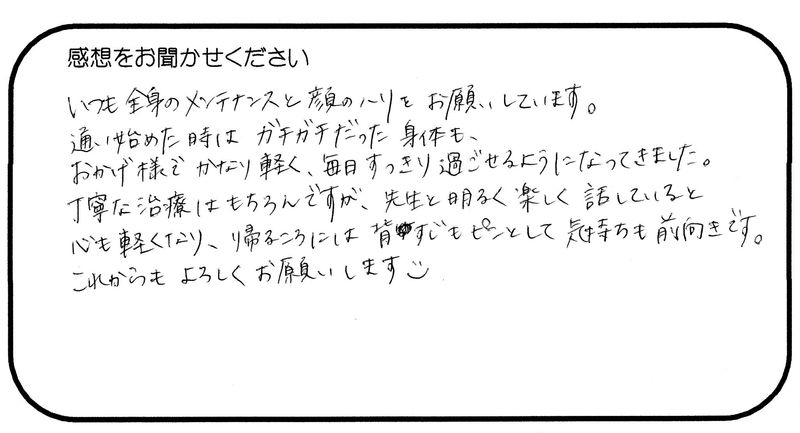 感想をお聞かせください
いつも全身のメンテナンスと顔のハリをお願いしています。
通い始めた時はガチガチだった身体も、
おかげ様でかなり軽く、毎日すっきり過ごせるようになってきました。
丁寧な治療はもちろんですが、先生と明るく楽しく話していると
心も軽くなり、帰るころには背すじもピンとして気持ちも前向きです。
これからもよろしくお願いします